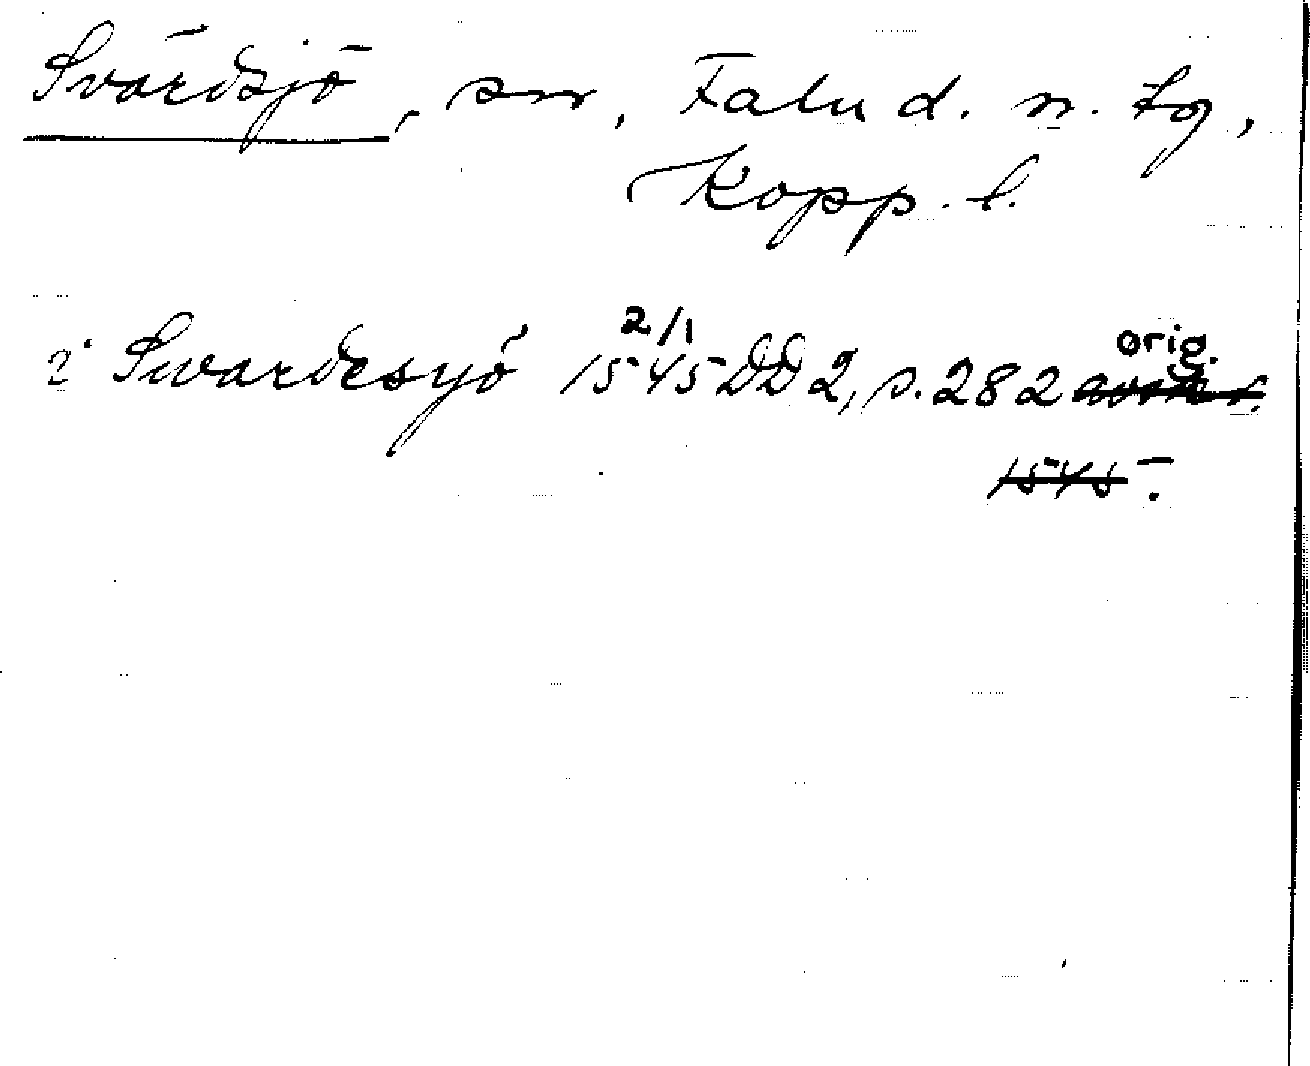 Svärdsjö, sn, Falu d. n. tg,
Kopp. l.
i Swardesyö 1545 2/1 DD 2, s. 282 orig.
1545.